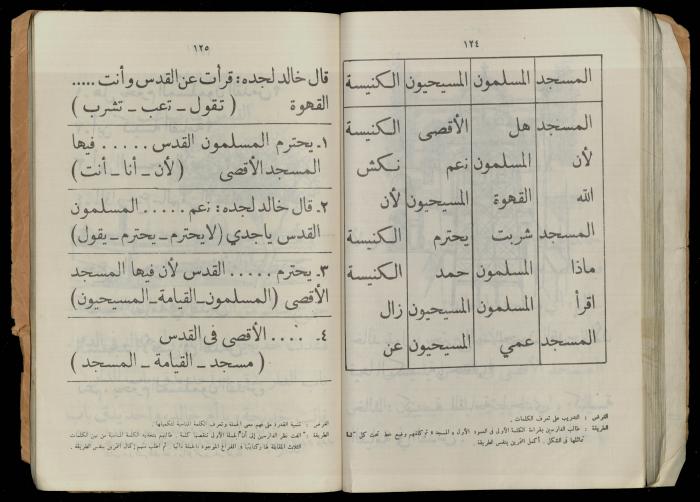 ١٢٤
المسجد المسلمون المسيحيون الكنيسة
المسجد هل الأقصى الكنيسة
لأن المسلمون نعم نكش
الله القهوة المسيحيون لأن
المسجد شربت يحترم الكنيسة
ماذا المسلمون حمد الكنيسة
اقرأ المسلمون المسيحيون زال
المسجد عمي المسيحيون عن
الغرض : التدريب على تعرف الكلمات .
الطريقة : طالب الدارسين بقراءة الكلمة الأولى فى العمود الأول « المسجد » ثم كلفهم وضع خط تحت كل كلمة
تماثلها فى الشكل . أكمل التمرين بنفس الطريقة .
١٢٥
قال خالد لجده : قرأت عن القدس وأنت .....
القهوة ( تقول ـ تعب ـ تشرب )
١ـ يحترم المسلمون القدس ..... فيها
المسجد الأقصى ( لأن ـ أنا ـ أنت )
٢ـ قال خالد لجده : نعم ..... المسلمون
القدس ياجدي ( لايحترم ـ يحترم ـ يقول )
٣ـ يحترم ..... القدس لأن فيها المسجد
الأقصى ( المسلمون ـ القيامة ـ المسيحيون )
٤ـ ..... الأقصى فى القدس
( مسجد ـ القيامة ـ المسجد )
الغرض : تنمية القدرة على فهم معنى الجملة وتعرف الكلمة المناسبة لتكملتها .
الطريقة : الفت نظر الدارسين إلى أن الجملة الأولى تنقصها كلمة . طالبهم بتحديد الكلمة المناسبة من بين الكلمات
الثلاث المقابلة لها وكتابتها فى الفراغ الموجود بالجملة ثم اطلب منهم إكمال التمرين بنفس الطريقة .